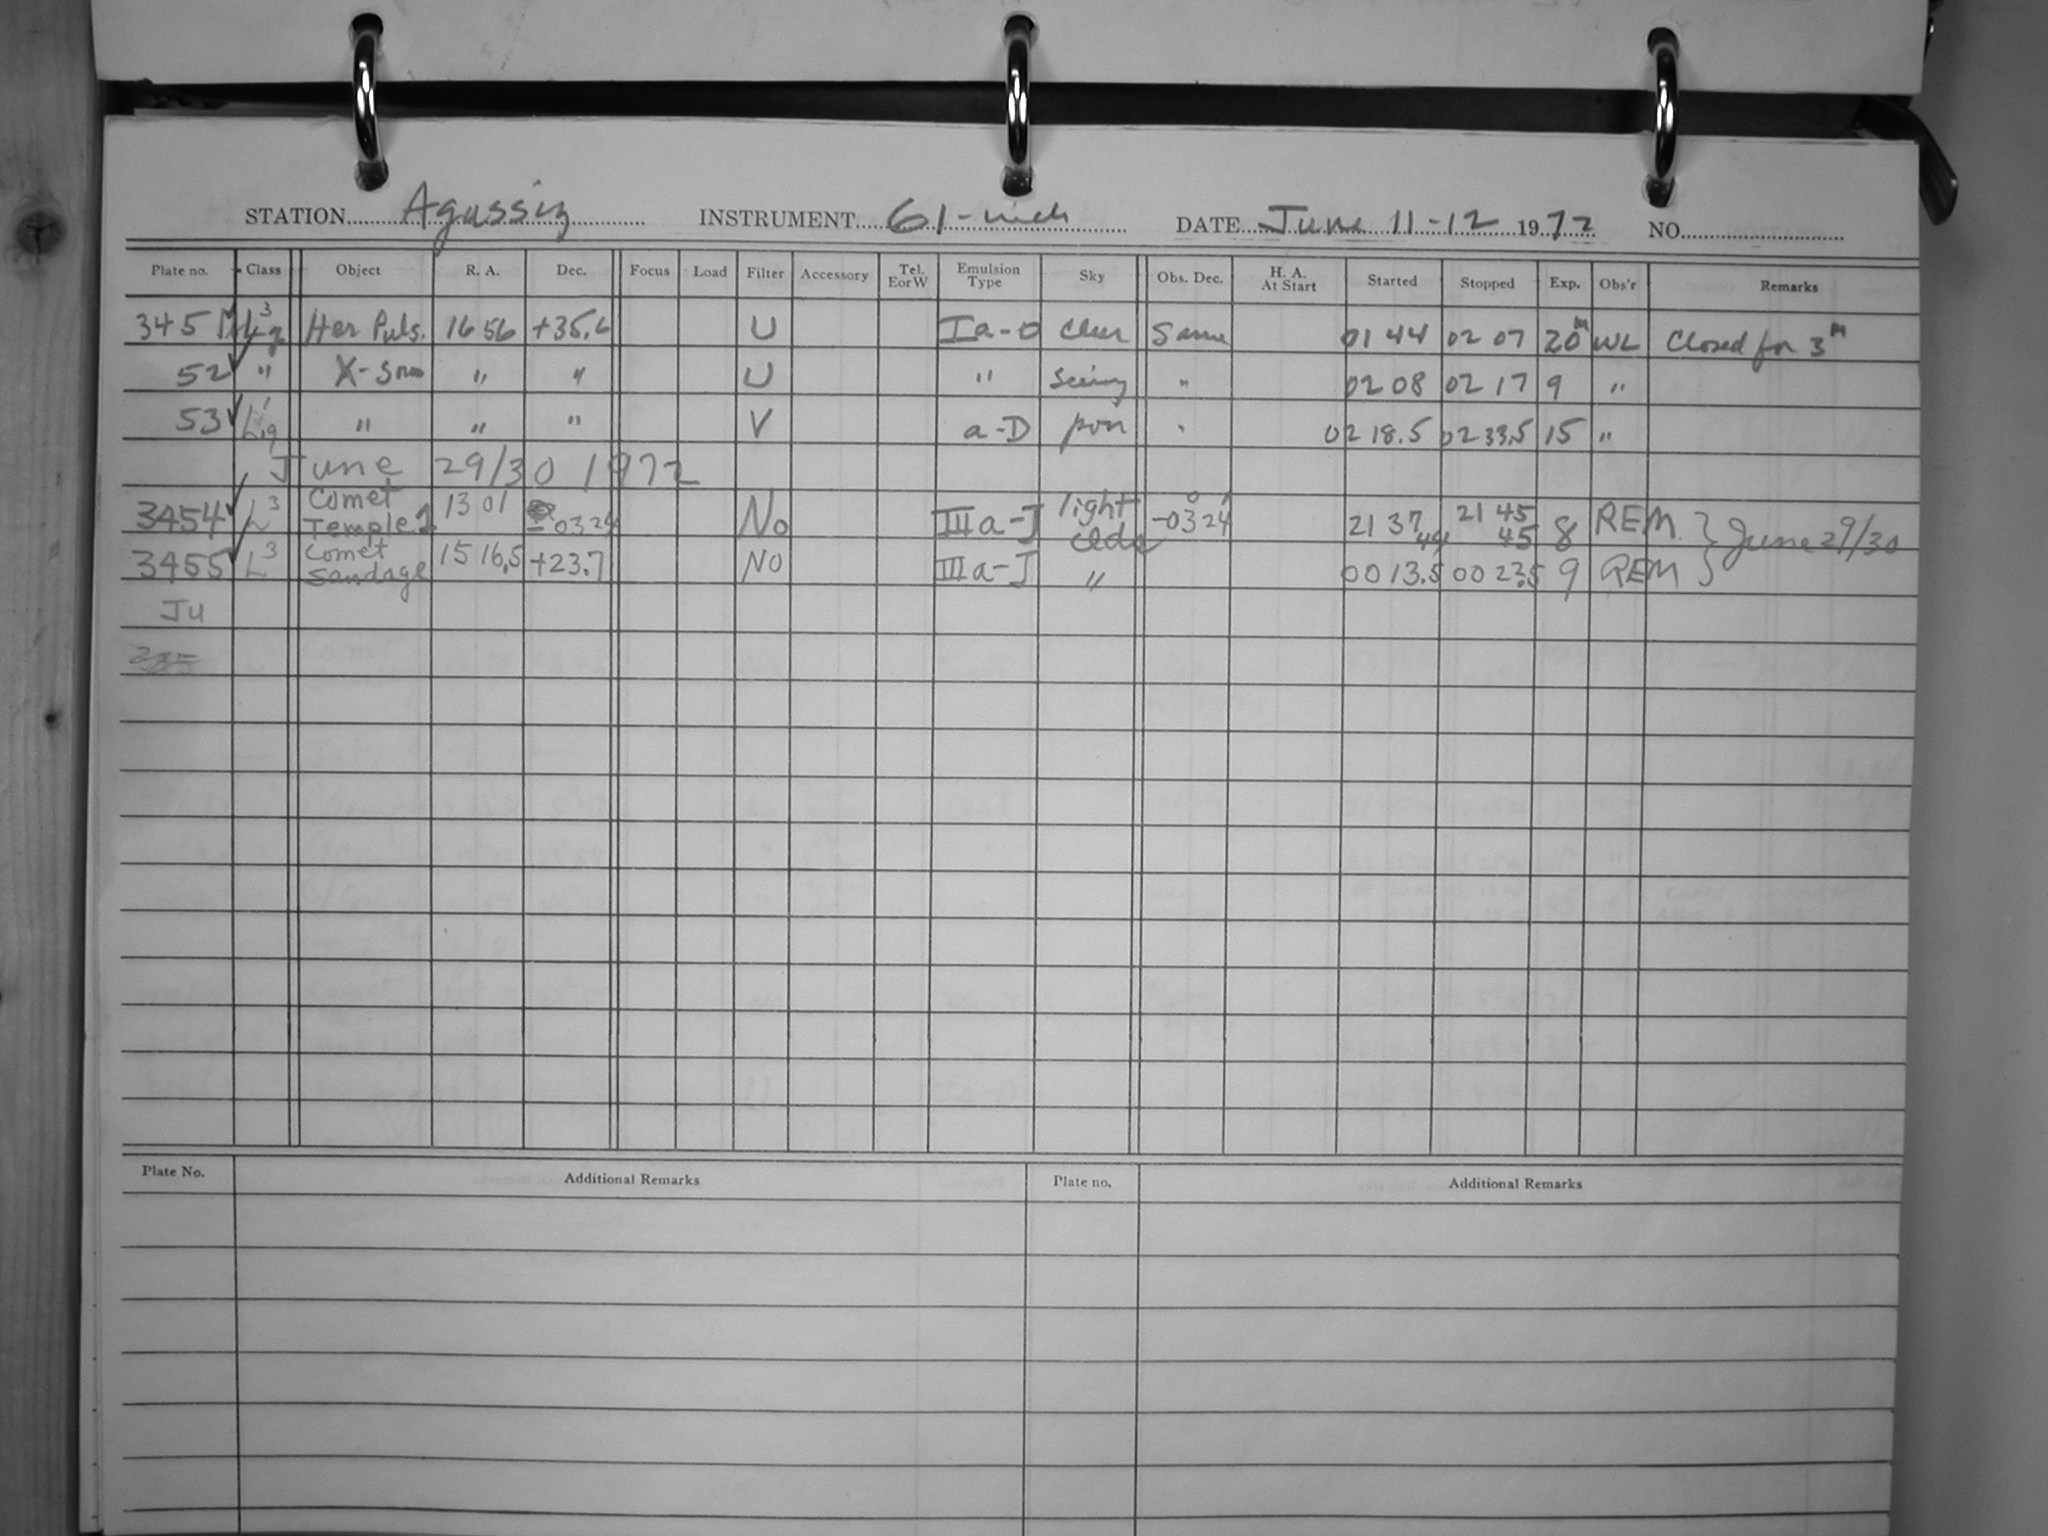 STATION Agassiz INSTRUMENT 61-inch DATE June 11-12 1972 NO.
Plate no. Class Object R. A. Dec. Focus Load Filter Accessory Tel. EorW Emulsion Type Sky Obs. Dec. H. A. At Start Started Stopped Exp. Obs'r Remarks
3451 Her Puls. 16 56 +35.6 U Ia-O Clear Same 01 44 02 07 20m WL Closed for 3m
52 " X-Sou " " U " Seeing " 02 08 02 17 9 "
53 " " " V a-D poor " 02 18.5 02 33.5 15 "
June 29/30 1972
3454 L3 Comet Temple 1 13 01 -03 24 No IIIa-J light clds -03° 24' 21 37 44 21 45 45 8 REM } June 29/30
3455 L3 Comet Sandage 15 16.5 +23.7 No IIIa-J " 00 13.5 00 23.5 9 REM }
Ju
Plate No. Additional Remarks Plate no. Additional Remarks